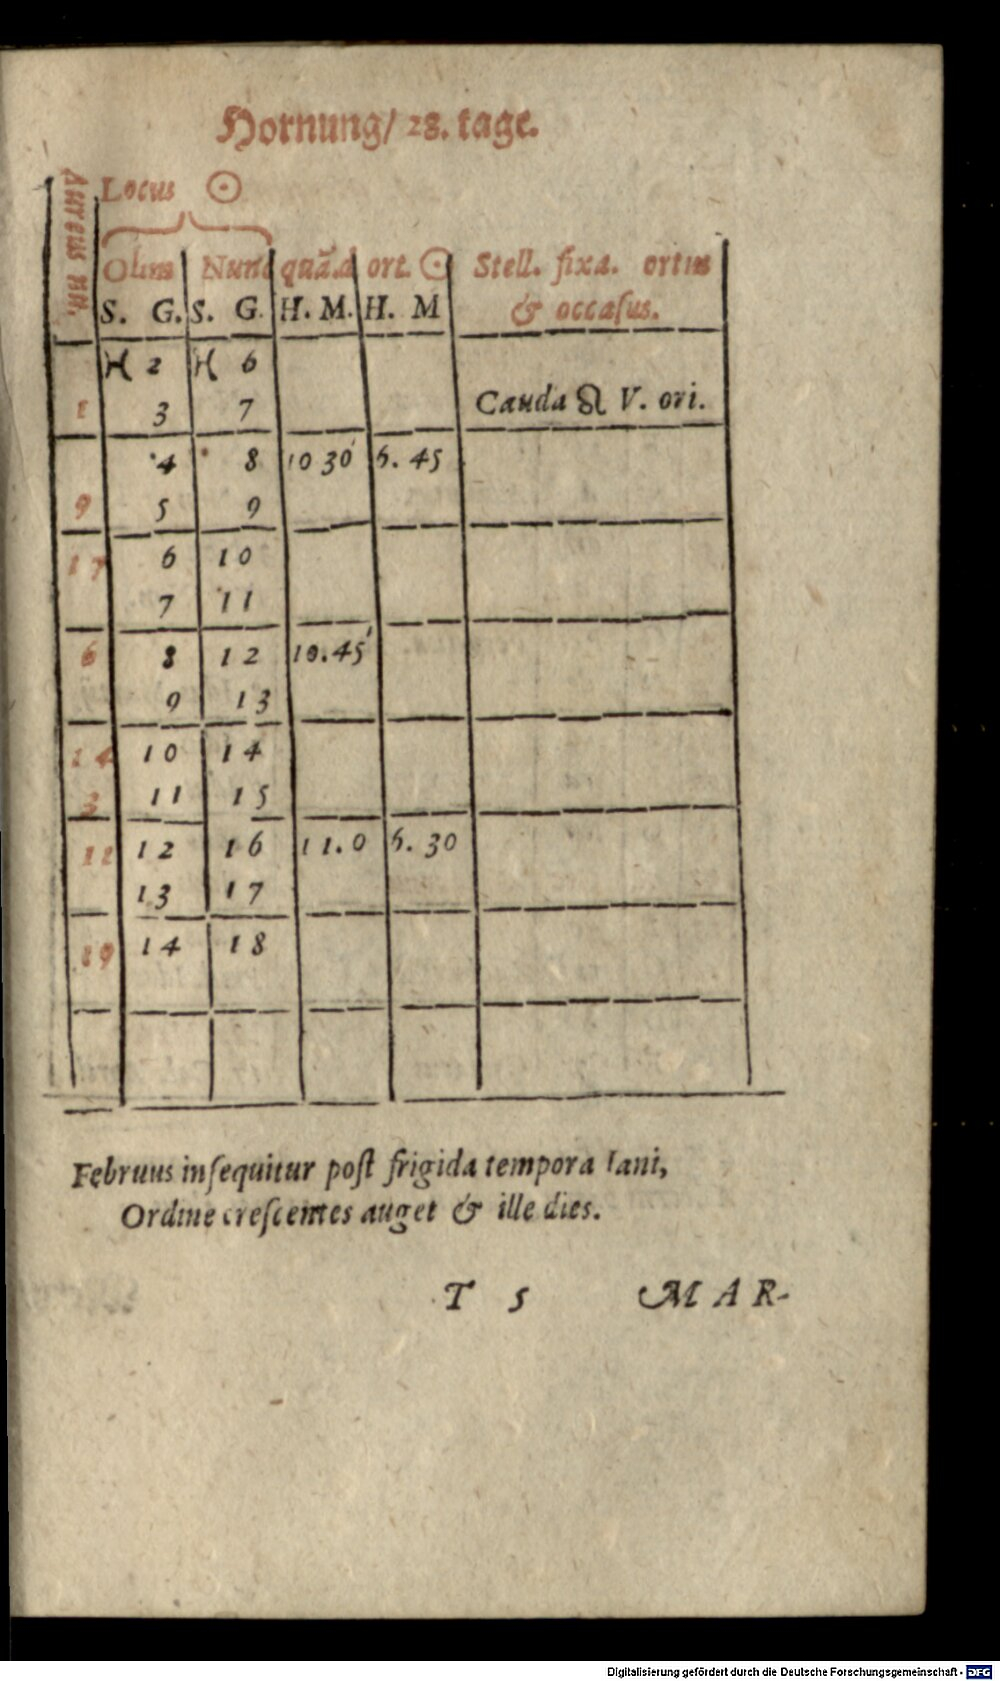 Hornung/ 28. tage.
Aureus nu.
Locus ☉
Olim Nunc quã.d ort. ☉ Stell. fixa. ortus
S. G. S. G. H. M. H. M & occaſus.
♓ 2 ♓ 6
1 3 7 Cauda ♌ V. ori.
4 8 10 30 6. 45
9 5 9
17 6 10
7 11
6 8 12 10.45
9 13
14 10 14
3 11 15
11 12 16 11.0 6. 30
13 17
19 14 18
Februus inſequitur poſt frigida tempora Iani,
Ordine creſcentes auget & ille dies.
T 5 MAR-
Digitalisierung gefördert durch die Deutsche Forschungsgemeinschaft - DFG